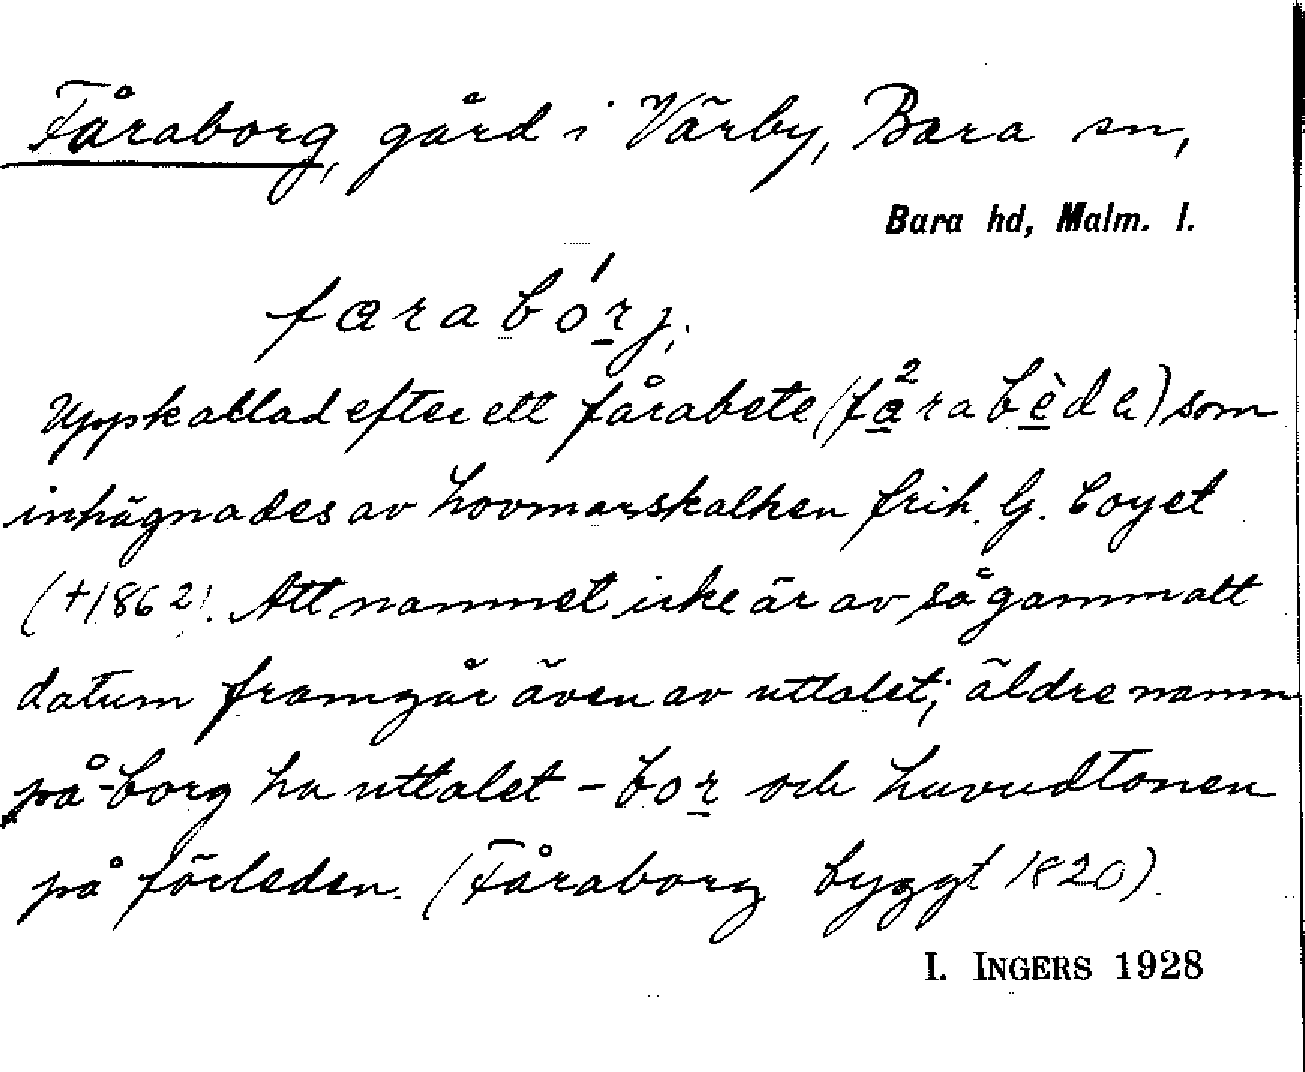 Fåraborg, gård i Värby, Bara sn,
Bara hd, Malm. l.
farabórj.
Uppkallad efter ett fårabete (fa²rabèda) som
inhägnades av hovmarskalken frih. G. Coyet
(+1862). Att namnet icke är av så gammalt
datum framgår även av uttalet; äldre namn
på -borg ha uttalet -bor och huvudtonen
på förleden. (Fåraborg byggt 1820).
I. INGERS 1928